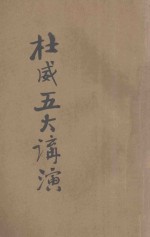 杜威五大講演